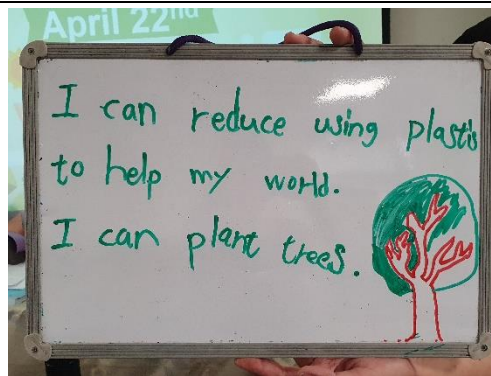 April 22nd
I can reduce using plastis
to help my world.
I can plant trees.